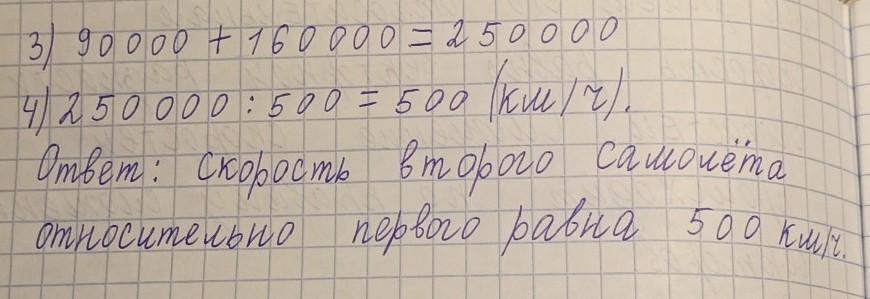 3) 90000 + 160000 = 250000
4) 250000 : 500 = 500 (км/ч).
Ответ: скорость второго самолёта
относительно первого равна 500 км/ч.